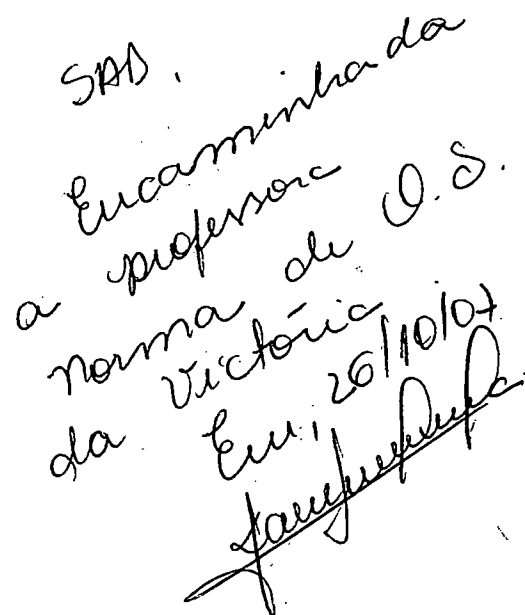 SAD.
Encaminhada
a professora
Norma de O. S.
da Victória
Em, 26/10/07